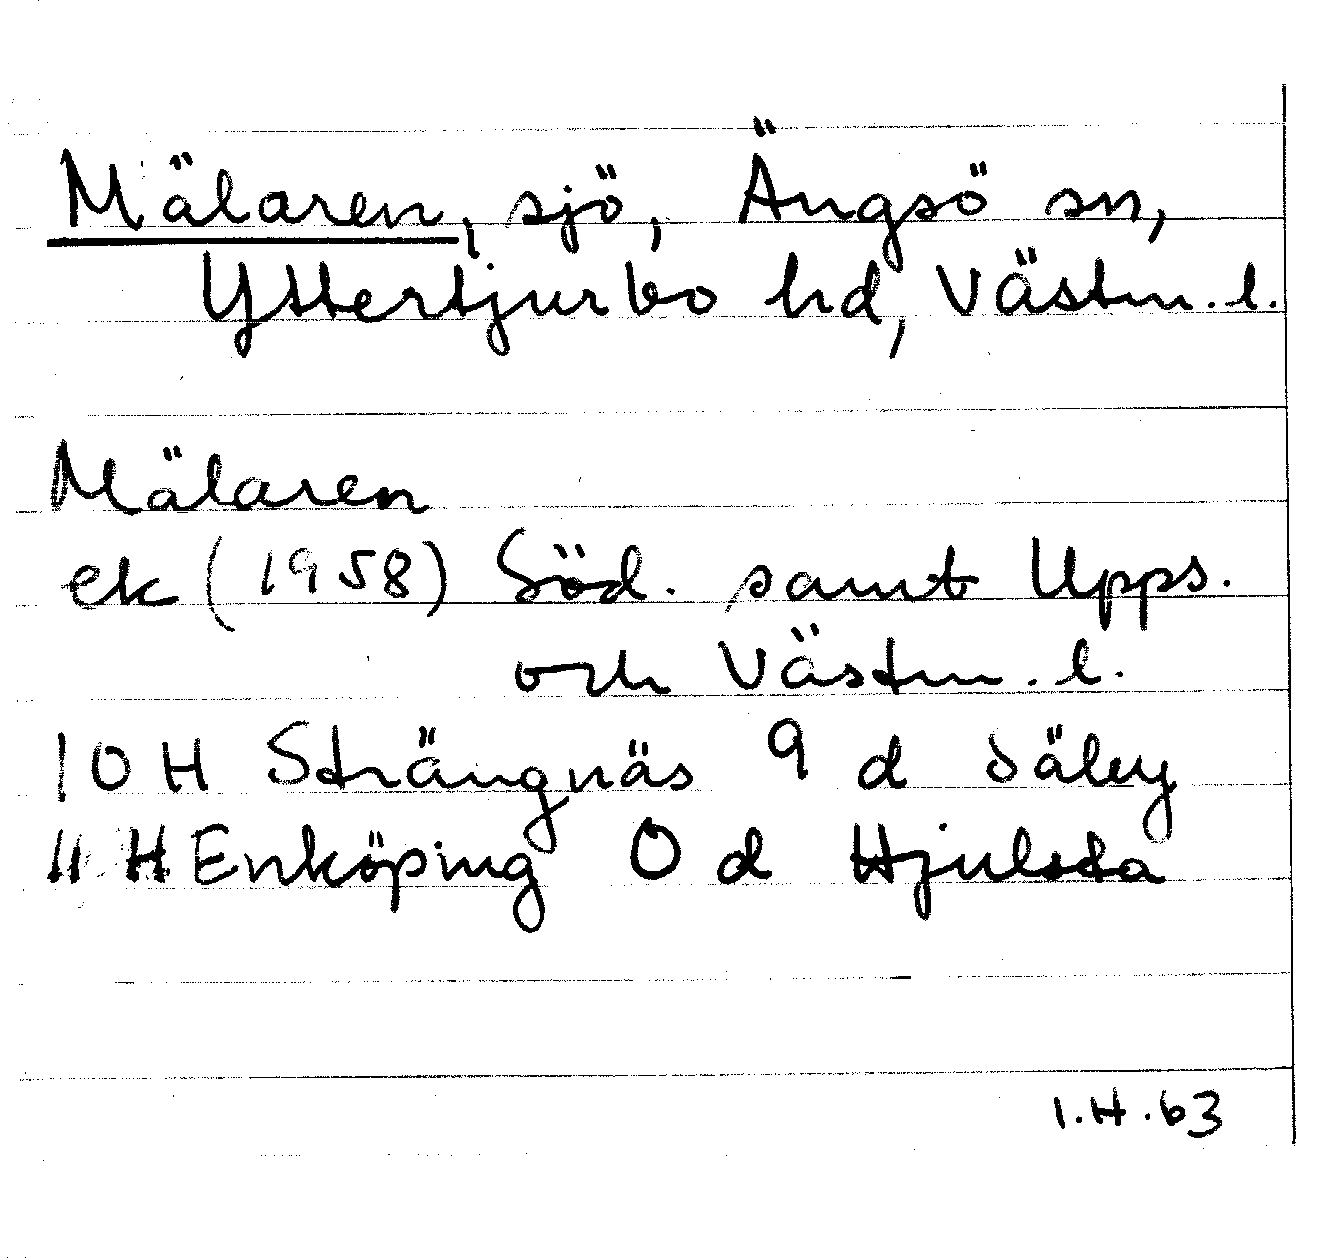 Mälaren, sjö, Ängsö sn,
Yttertjurbo hd, Västm. l.
Mälaren
ek (1958) Söd. samt Upps.
och Västm. l.
10 H Strängnäs 9 d Säby
11 H Enköping 0 d Hjulsta
I.H. 63